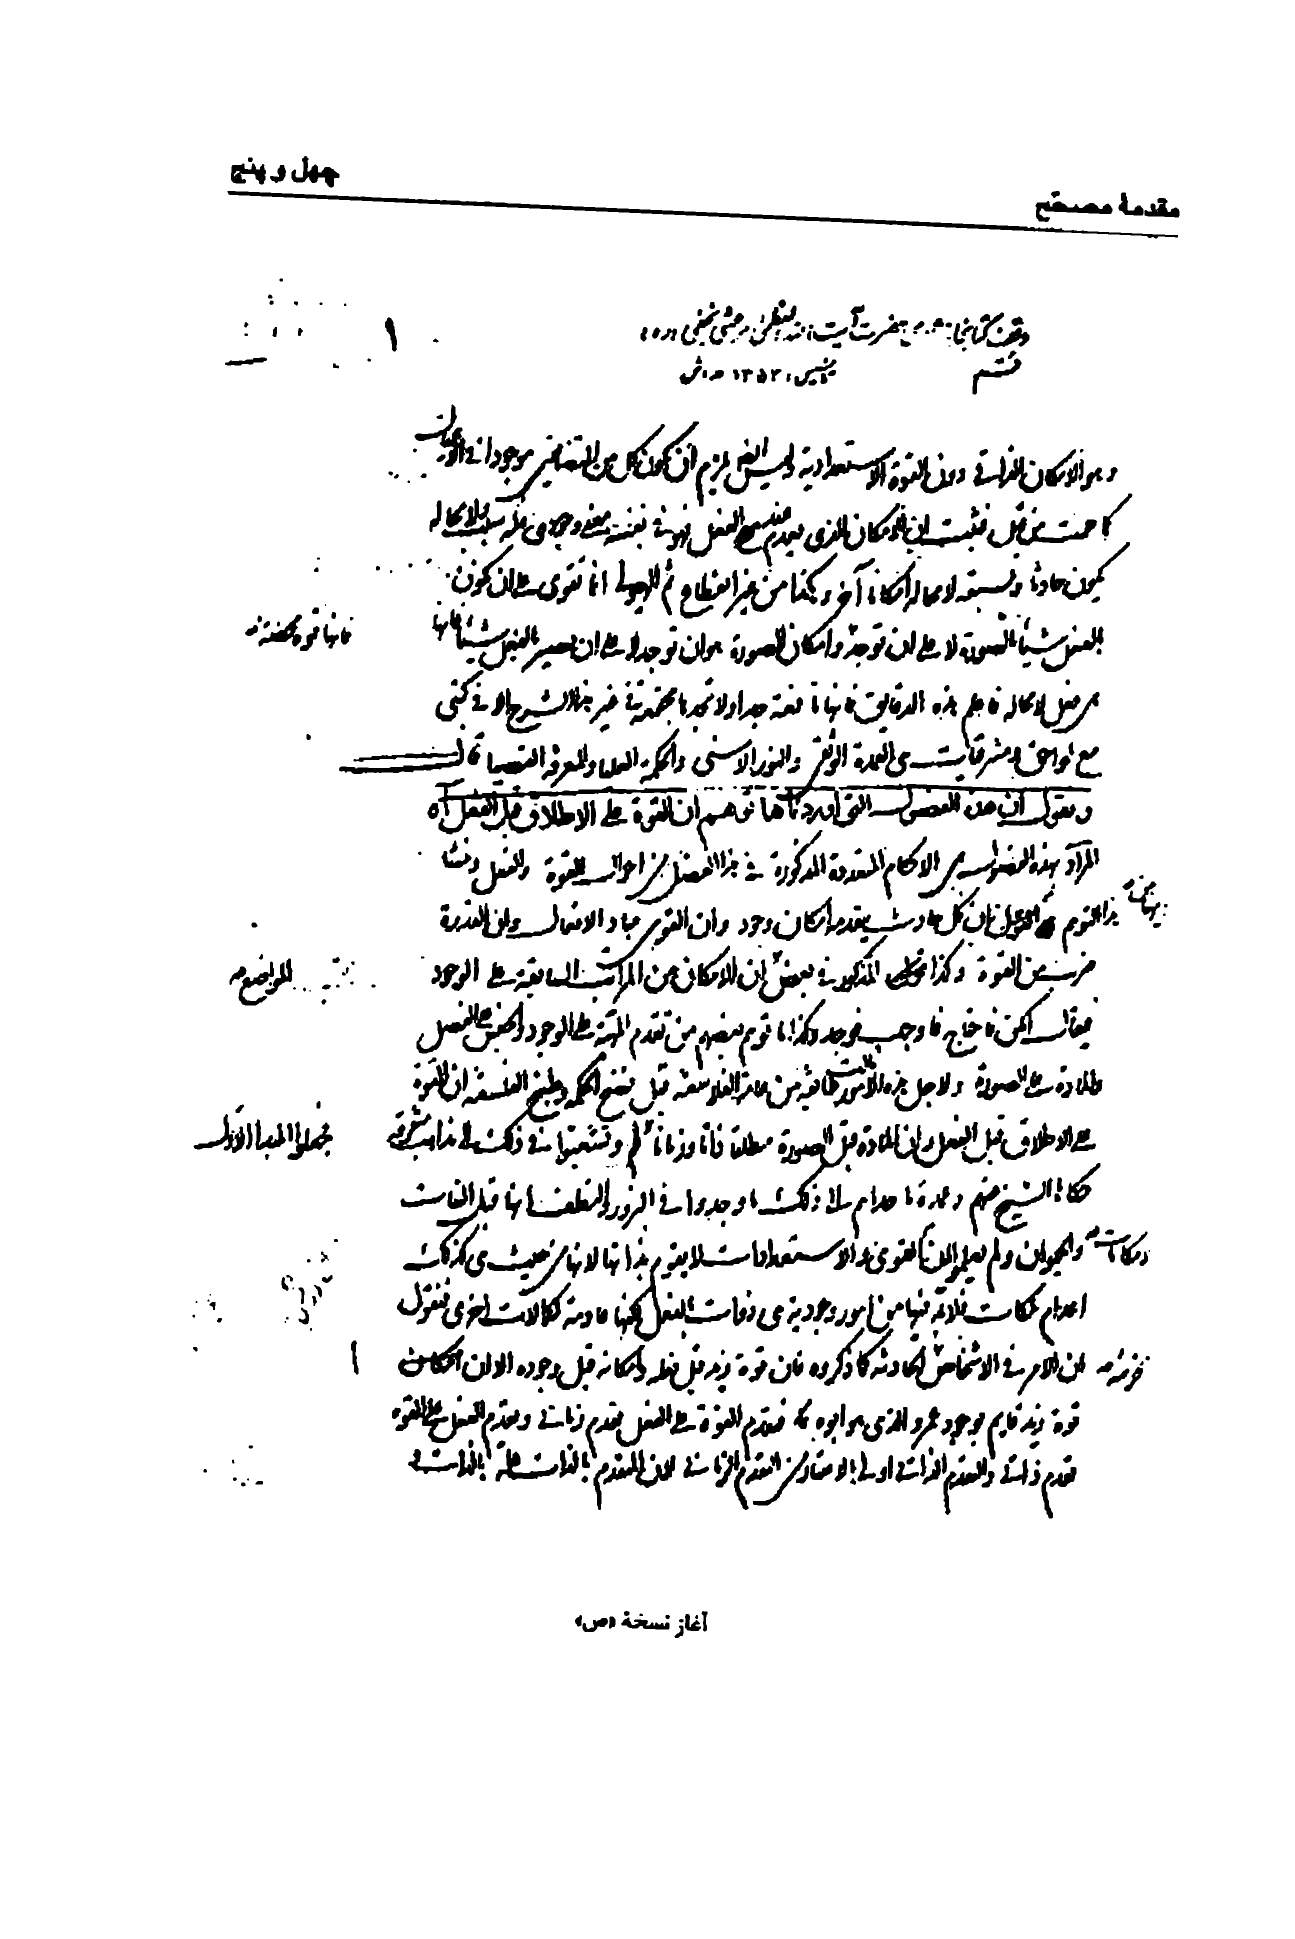 چهل و پنج
مقدمهٔ مصحّح
وقف کتابخانه حضرت آیت الله العظمی مرعشی نجفی
قم
۱۳۵۲
وهو الامکان الذاتی دون القوة الاستعدادیة ولیس یلزم ان یکون کل من المتضایفین موجودا فی الاعیان
کما علمت من قبل فثبت ان الامکان الذی یعدم مع الفعل فهو فی نفسه معنی وجودی
یکون حادثا ویسبقه لامحالة امکان آخر وهکذا من غیر انقطاع ثم الهیولی انما تقوی علی ان تکون
بالفعل شیئا بالصورة لا علی ان توجد وامکان الصورة هو ان توجد لا علی ان یصیر بالفعل شیئا فانها
فانها قوة محضة
هی فعل لامحالة فاعلم هذه الدقایق فانها نافعة جدا ولا تجدها مجتمعة فی غیر هذا الشرح الا فی کتبی
مع لواحق ومشرقیات هی العمدة الوثقی والنور الاسنی والحکمة العلیا والمعرفة القصیا قال
ونقول ان هذه الفصول التی اوردناها توهم ان القوة علی الاطلاق قبل الفعل آه
المراد بهذه الفصول هی الاحکام المتقدمة المذکورة فی هذا الفصل من احوال القوة والفعل ومنشأ
هذا التوهم ان کل حادث یتقدمه امکان وجود وان القوی مباد الافعال وان القدرة
ضرب من القوة وکذا المذکور فی بعض ان الامکان من المراتب السابقة علی الوجود
المواضع
فیقال امکن فاحتاج فاوجب فوجد وکذا ما توهم بعضهم من تقدم المهیة علی الوجود والجنس علی الفصل
والمادة علی الصورة ولاجل هذه الامور مالت طائفة من عامة الفلاسفة قبل نضج الحکمة وطبخ الفلسفة ان القوة
علی الاطلاق قبل الفعل وان المادة قبل الصورة مطلقا ذاتا وزمانا ثم وتشعبوا فی ذلک الی مذاهب متفرقة
فجعلوا المبدأ الاول
حکاها الشیخ عنهم وعمدة ما حداهم علی ذلک ما وجدوا فی البزور والنطف انها قبل النبات
والحیوان ولم یعلموا ان القوی والاستعدادات لا یقوم بذاتها لانها من حیث هی کذلک
اعدام ملکات فلابد فیها من امور وجودیة هی ذوات بالفعل لکنها عادمة لکمالات اخری فنقول
ان الامر فی الاشخاص الحادثة کما ذکروه فان قوة زید قبل فعله وامکانه قبل وجوده الا ان امکان
قوة زید قایم بوجود عمرو الذی هو ابوه فتقدم القوة علی الفعل تقدم زمانی وتقدم الفعل علی القوة
تقدم ذاتی والتقدم الذاتی اولی بالاعتبار من التقدم الزمانی لان المتقدم بالذات علة بالذات
آغاز نسخهٔ «ص»